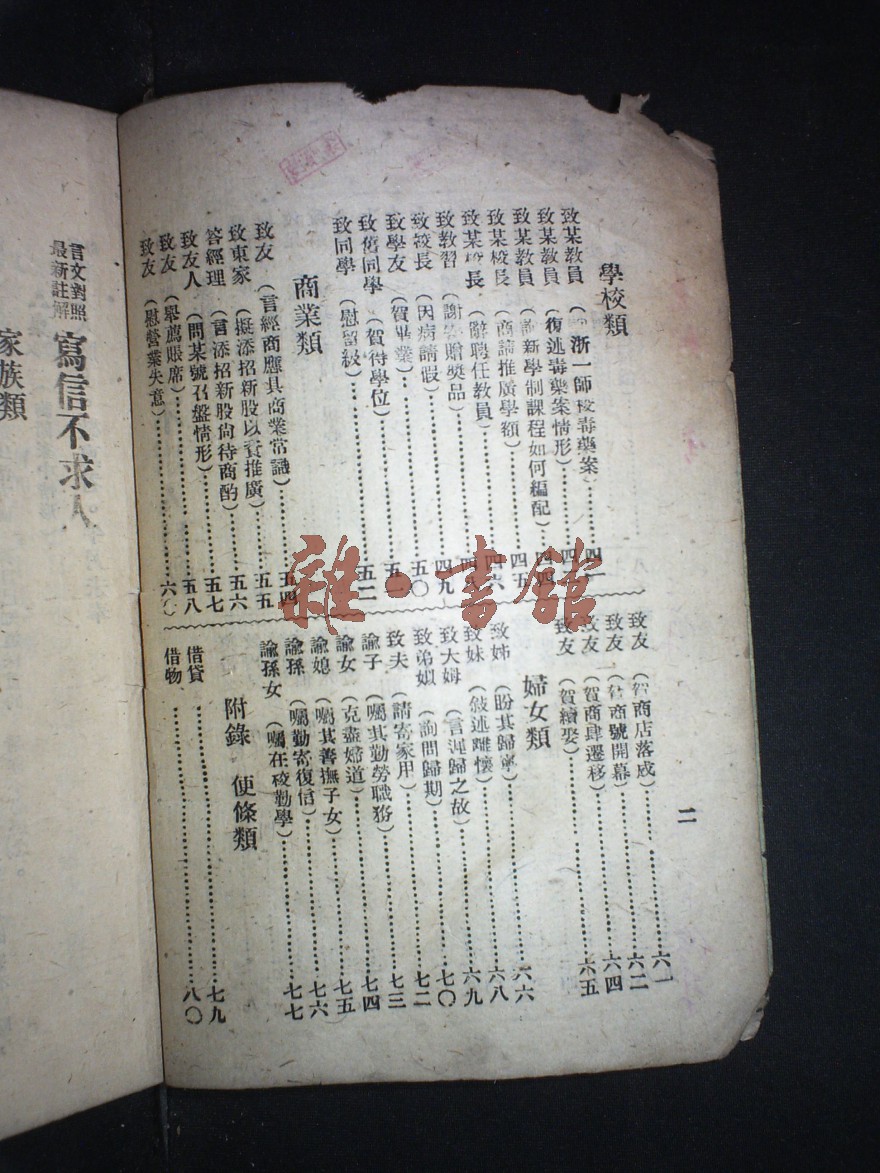 學校類
致某教員（浙一師校毒藥案）
致某教員（復述毒藥案情形）
致某教員（新學制課程如何編配）四四
致某校長（商請推廣學額）四五
致某校長（辭聘任教員）四六
致教習（謝贈獎品）四八
致校長（因病請假）四九
致學友（賀畢業）五〇
致舊同學（賀得學位）五一
致同學（慰留級）五二
商業類
致友（言經商應具商業常識）五四
致東家（擬添招新股以資推廣）五五
答經理（言添招新股尙待商酌）五六
致友人（問某號召盤情形）五七
致友（舉薦賬席）五八
致友（慰營業失意）六〇
致友（賀商店落成）六一
致友（賀商號開幕）六二
致友（賀商肆遷移）六四
致友（賀續娶）六五
婦女類
致姊（盼其歸寧）六六
致妹（敍述離懷）六八
致大姆（言遲歸之故）六九
致弟姒（詢問歸期）七〇
致夫（請寄家用）七二
諭子（囑其勤勞職務）七三
諭女（克盡婦道）七四
諭媳（囑其善撫子女）七五
諭孫（囑勤寄復信）七六
諭孫女（囑在校勤學）七七
附錄 便條類
借貸七九
借物八〇
二
言文對照
最新註解
寫信不求人
家族類
雜·書館